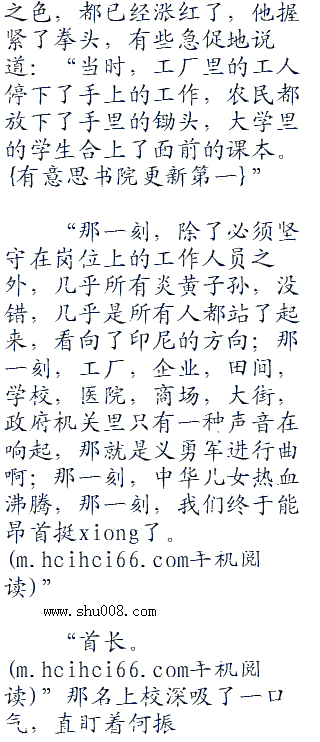 之色，都已经涨红了，他握
紧了拳头，有些急促地说
道：“当时，工厂里的工人
停下了手上的工作，农民都
放下了手里的锄头，大学里
的学生合上了面前的课本。
{有意思书院更新第一}”
“那一刻，除了必须坚
守在岗位上的工作人员之
外，几乎所有炎黄子孙，没
错，几乎是所有人都站了起
来，看向了印尼的方向；那
一刻，工厂，企业，田间，
学校，医院，商场，大街，
政府机关里只有一种声音在
响起，那就是义勇军进行曲
啊；那一刻，中华儿女热血
沸腾，那一刻，我们终于能
昂首挺xiong了。
(m.hcihci66.com手机阅
读)”
www.shu008.com
“首长。
(m.hcihci66.com手机阅
读)”那名上校深吸了一口
气，直盯着何振